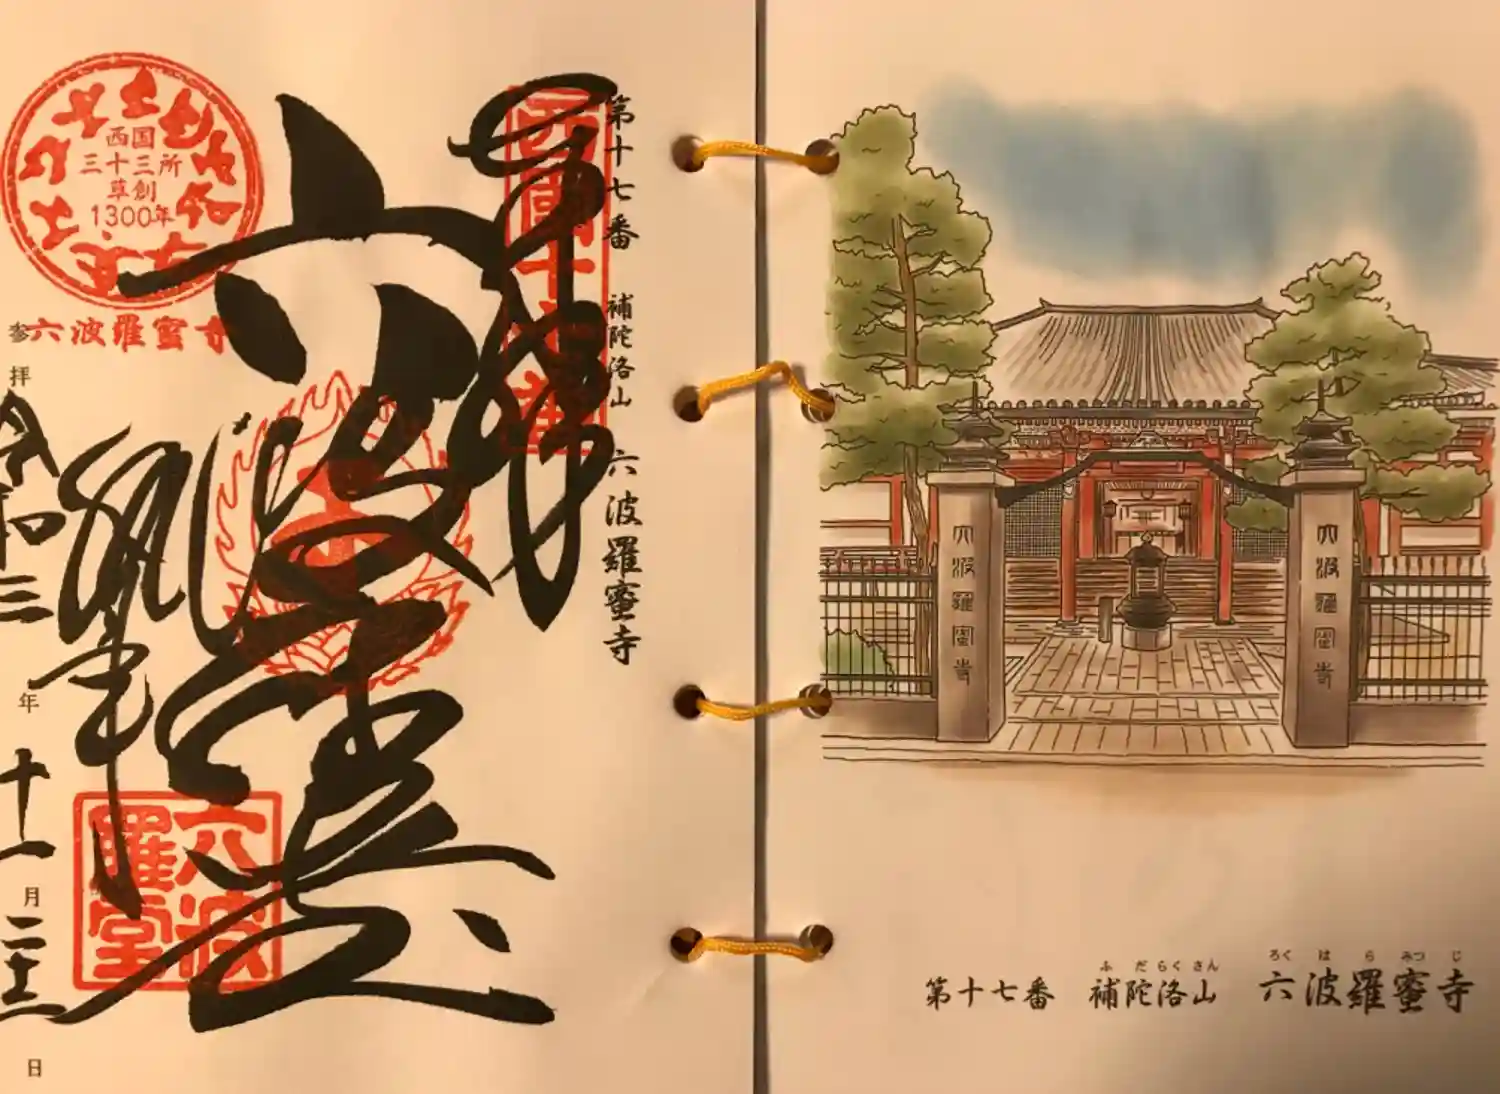 第十七番 補陀洛山 六波羅蜜寺
西国十七番
六波羅堂
西国
三十三所
草創
1300年
六波羅蜜寺
参拝
令和三年十一月
日
六波羅堂
六波羅蜜寺
六波羅蜜寺
ふだらくさん ろくはらみつじ
第十七番 補陀洛山 六波羅蜜寺